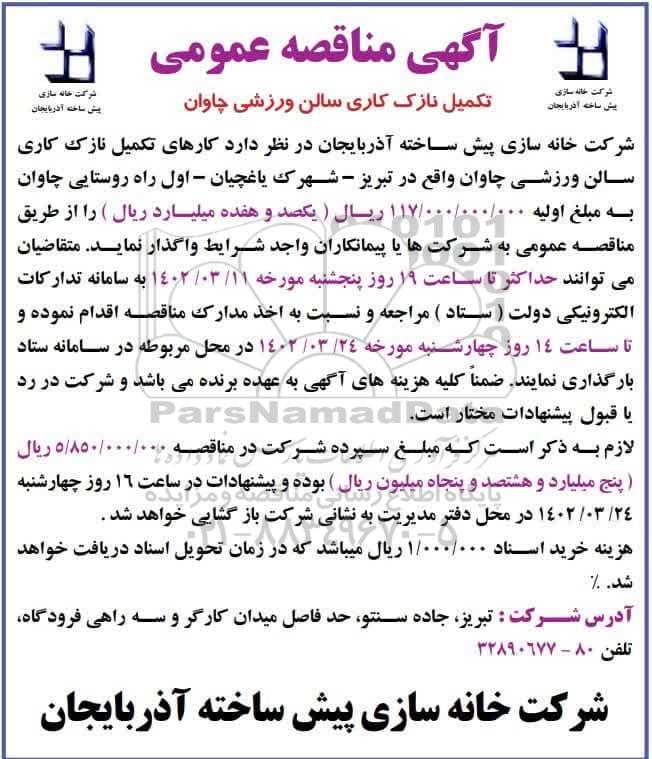 آگهی مناقصه عمومی
تکمیل نازک کاری سالن ورزشی چاوان
شرکت خانه سازی
پیش ساخته آذربایجان
شرکت خانه سازی
پیش ساخته آذربایجان
شرکت خانه سازی پیش ساخته آذربایجان در نظر دارد کارهای تکمیل نازک کاری
سالن ورزشی چاوان واقع در تبریز – شهرک یاغچیان – اول راه روستایی چاوان
به مبلغ اولیه ۱۱۷/۰۰۰/۰۰۰/۰۰۰ ریال ( یکصد و هفده میلیارد ریال ) را از طریق
مناقصه عمومی به شرکت ها یا پیمانکاران واجد شرایط واگذار نماید. متقاضیان
می توانند حداکثر تا ساعت ۱۹ روز پنجشنبه مورخه ۱۱/ ۰۳/ ۱۴۰۲ به سامانه تدارکات
الکترونیکی دولت ( ستاد ) مراجعه و نسبت به اخذ مدارک مناقصه اقدام نموده و
تا ساعت ۱۴ روز چهارشنبه مورخه ۲۴/ ۰۳/ ۱۴۰۲ در محل مربوطه در سامانه ستاد
بارگذاری نمایند. ضمناً کلیه هزینه های آگهی به عهده برنده می باشد و شرکت در رد
یا قبول پیشنهادات مختار است.
ParsNamadData
لازم به ذکر است که مبلغ سپرده شرکت در مناقصه ۵/۸۵۰/۰۰۰/۰۰۰ ریال
( پنج میلیارد و هشتصد و پنجاه میلیون ریال ) بوده و پیشنهادات در ساعت ۱۶ روز چهارشنبه
پایگاه اطلاع رسانی مناقصه و مزایده
۲۴/ ۰۳/ ۱۴۰۲ در محل دفتر مدیریت به نشانی شرکت باز گشایی خواهد شد .
۰۲۱-۸۸۳۴۹۶۷۰-۵
هزینه خرید اسناد ۱/۰۰۰/۰۰۰ ریال میباشد که در زمان تحویل اسناد دریافت خواهد
شد. ٪
آدرس شرکت : تبریز، جاده سنتو، حد فاصل میدان کارگر و سه راهی فرودگاه،
تلفن ۸۰ - ۳۲۸۹۰۶۷۷
شرکت خانه سازی پیش ساخته آذربایجان